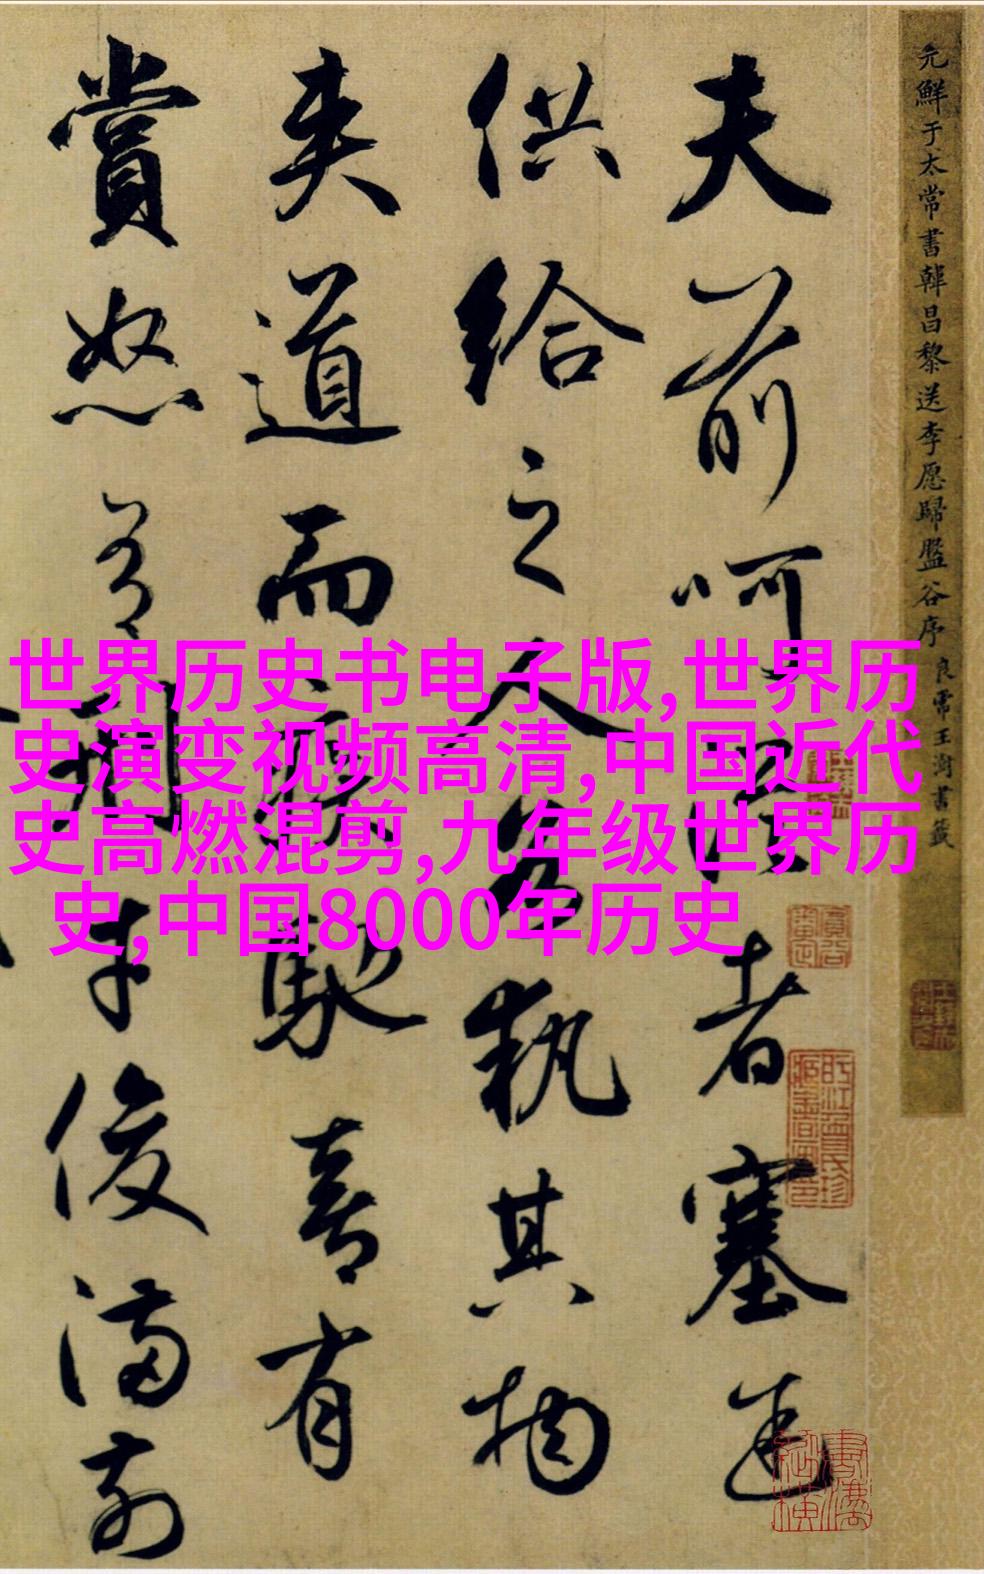 元鮮于太常書韓昌黎送李愿歸盤谷序 良常王澍書籤
夫前呵從者塞途
供給之人各執其物
夾道而疾馳喜有
賞怒有刑才俊滿前
世界历史书电子版,世界历
史演变视频高清,中国近代
史高燃混剪,九年级世界历
史,中国8000年历史